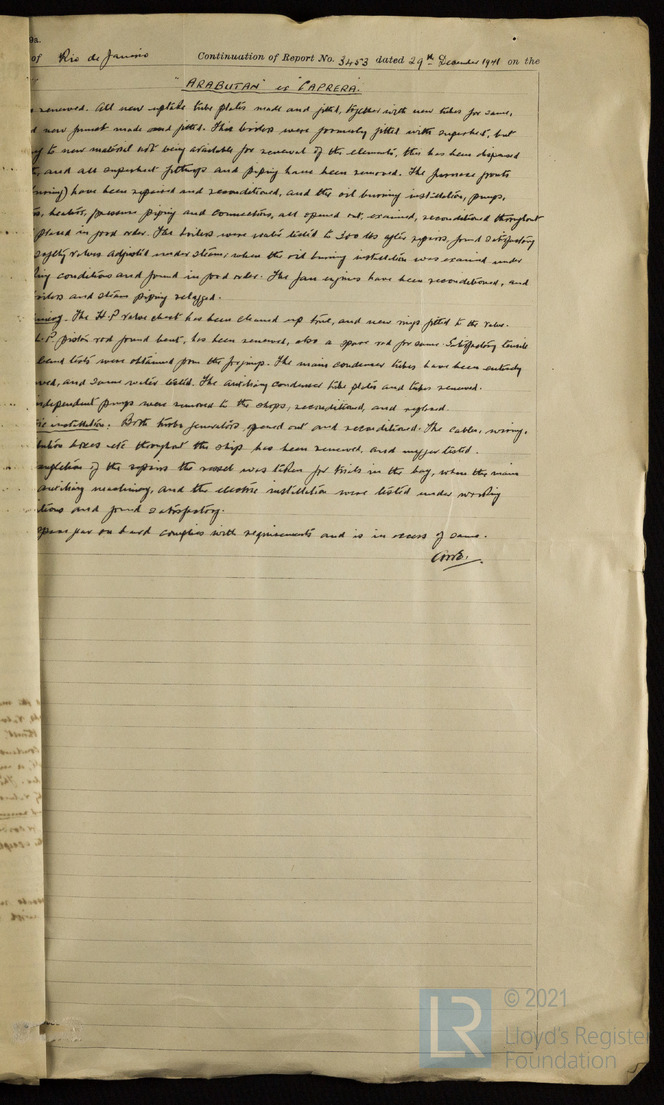 9a.
of Rio de Janeiro Continuation of Report No. 3453 dated 29th December 1941 on the
"ARABUTAN" ex "CAPRERA".
renewed. All new uptake tube plates made and fitted, together with new tubes for same,
new funnel made and fitted. These boilers were formerly fitted with superheat, but
to new material not being available for renewal of the elements, this has been dispensed
and all superheat fittings and piping have been removed. The furnace fronts
have been repaired and reconditioned, and the oil burning installation, pumps,
heaters, pressure piping and connections, all opened out, examined, reconditioned throughout
placed in good order. The boilers were water tested to 300 lbs after repairs, found satisfactory
safety valves adjusted under steam, when the oil burning installation was examined under
conditions and found in good order. The fan engines have been reconditioned, and
boilers and steam piping relagged.
The H.P. valve chest has been cleaned up true, and new rings fitted to the valve.
piston rod found bent, has been renewed, also a spare rod for same. Satisfactory tensile
bend tests were obtained from the forgings. The main condenser tubes have been entirely
and same water tested. The auxiliary condenser tube plates and tubes renewed.
independent pumps were removed to the shops, reconditioned, and replaced.
installation. Both turbo generators, opened out and reconditioned. The cables, wiring,
boxes etc throughout the ship has been renewed, and megger tested.
of the repairs the vessel was taken for trials in the bay, when the main
auxiliary machinery, and the electric installation were tested under working
and found satisfactory.
spare gear on board complies with requirements and is in excess of same.
© 2021
LR
Lloyd's Register
Foundation